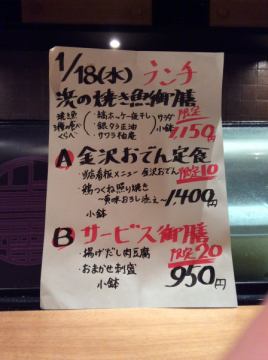 1/18(水) ランチ
浜の焼き魚御膳
焼き魚
3種の食べ
くらべ
・縞ホッケ一夜干し
・銀ダラ正油
・サワラ柚庵
サラダ
小鉢
限定
1150円
A 金沢おでん定食
・当店看板メニュー 金沢おでん
限定10
・鶏つくね照り焼き
〜黄味おろし添え〜
1,400円
小鉢
B サービス御膳
・揚げだし肉豆腐
限定20
・おまかせ刺盛
950円
小鉢